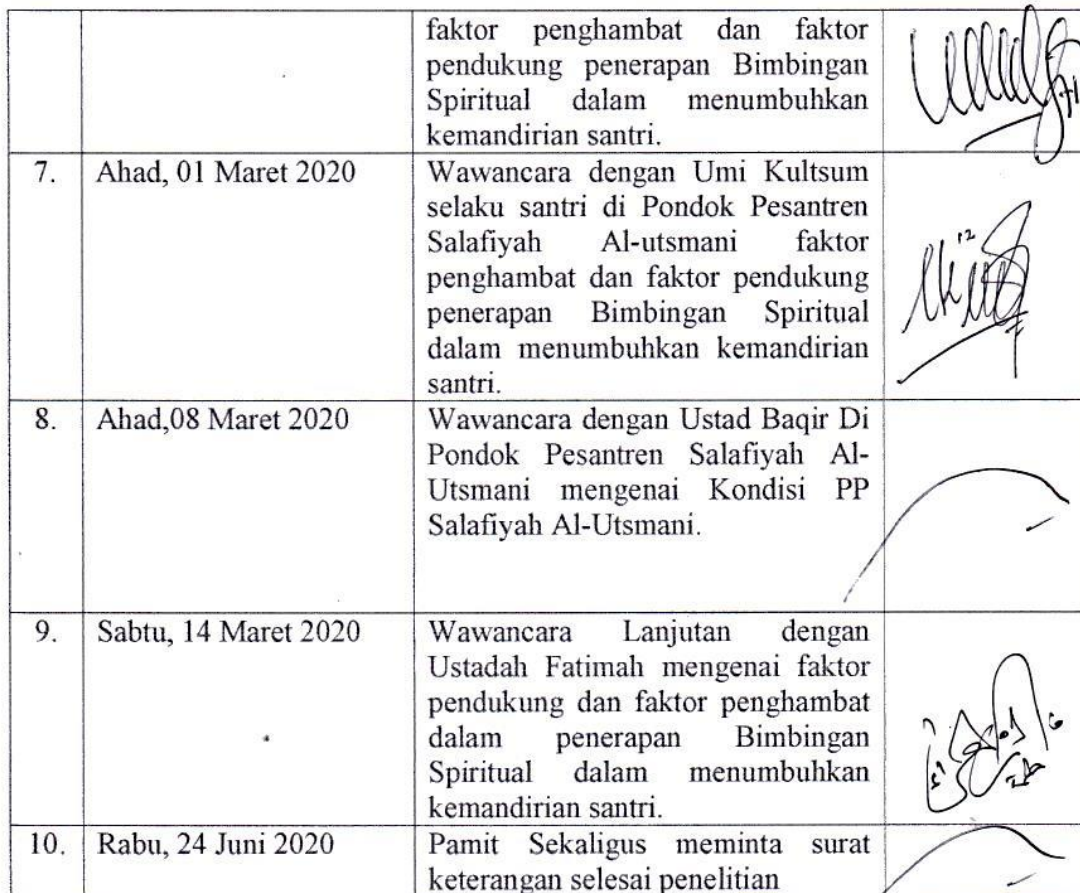 faktor penghambat dan faktor
pendukung penerapan Bimbingan
Spiritual dalam menumbuhkan
kemandirian santri.
7. Ahad, 01 Maret 2020 Wawancara dengan Umi Kultsum
selaku santri di Pondok Pesantren
Salafiyah Al-utsmani faktor
penghambat dan faktor pendukung
penerapan Bimbingan Spiritual
dalam menumbuhkan kemandirian
santri.
8. Ahad,08 Maret 2020 Wawancara dengan Ustad Baqir Di
Pondok Pesantren Salafiyah Al-
Utsmani mengenai Kondisi PP
Salafiyah Al-Utsmani.
9. Sabtu, 14 Maret 2020 Wawancara Lanjutan dengan
Ustadah Fatimah mengenai faktor
pendukung dan faktor penghambat
dalam penerapan Bimbingan
Spiritual dalam menumbuhkan
kemandirian santri.
10. Rabu, 24 Juni 2020 Pamit Sekaligus meminta surat
keterangan selesai penelitian